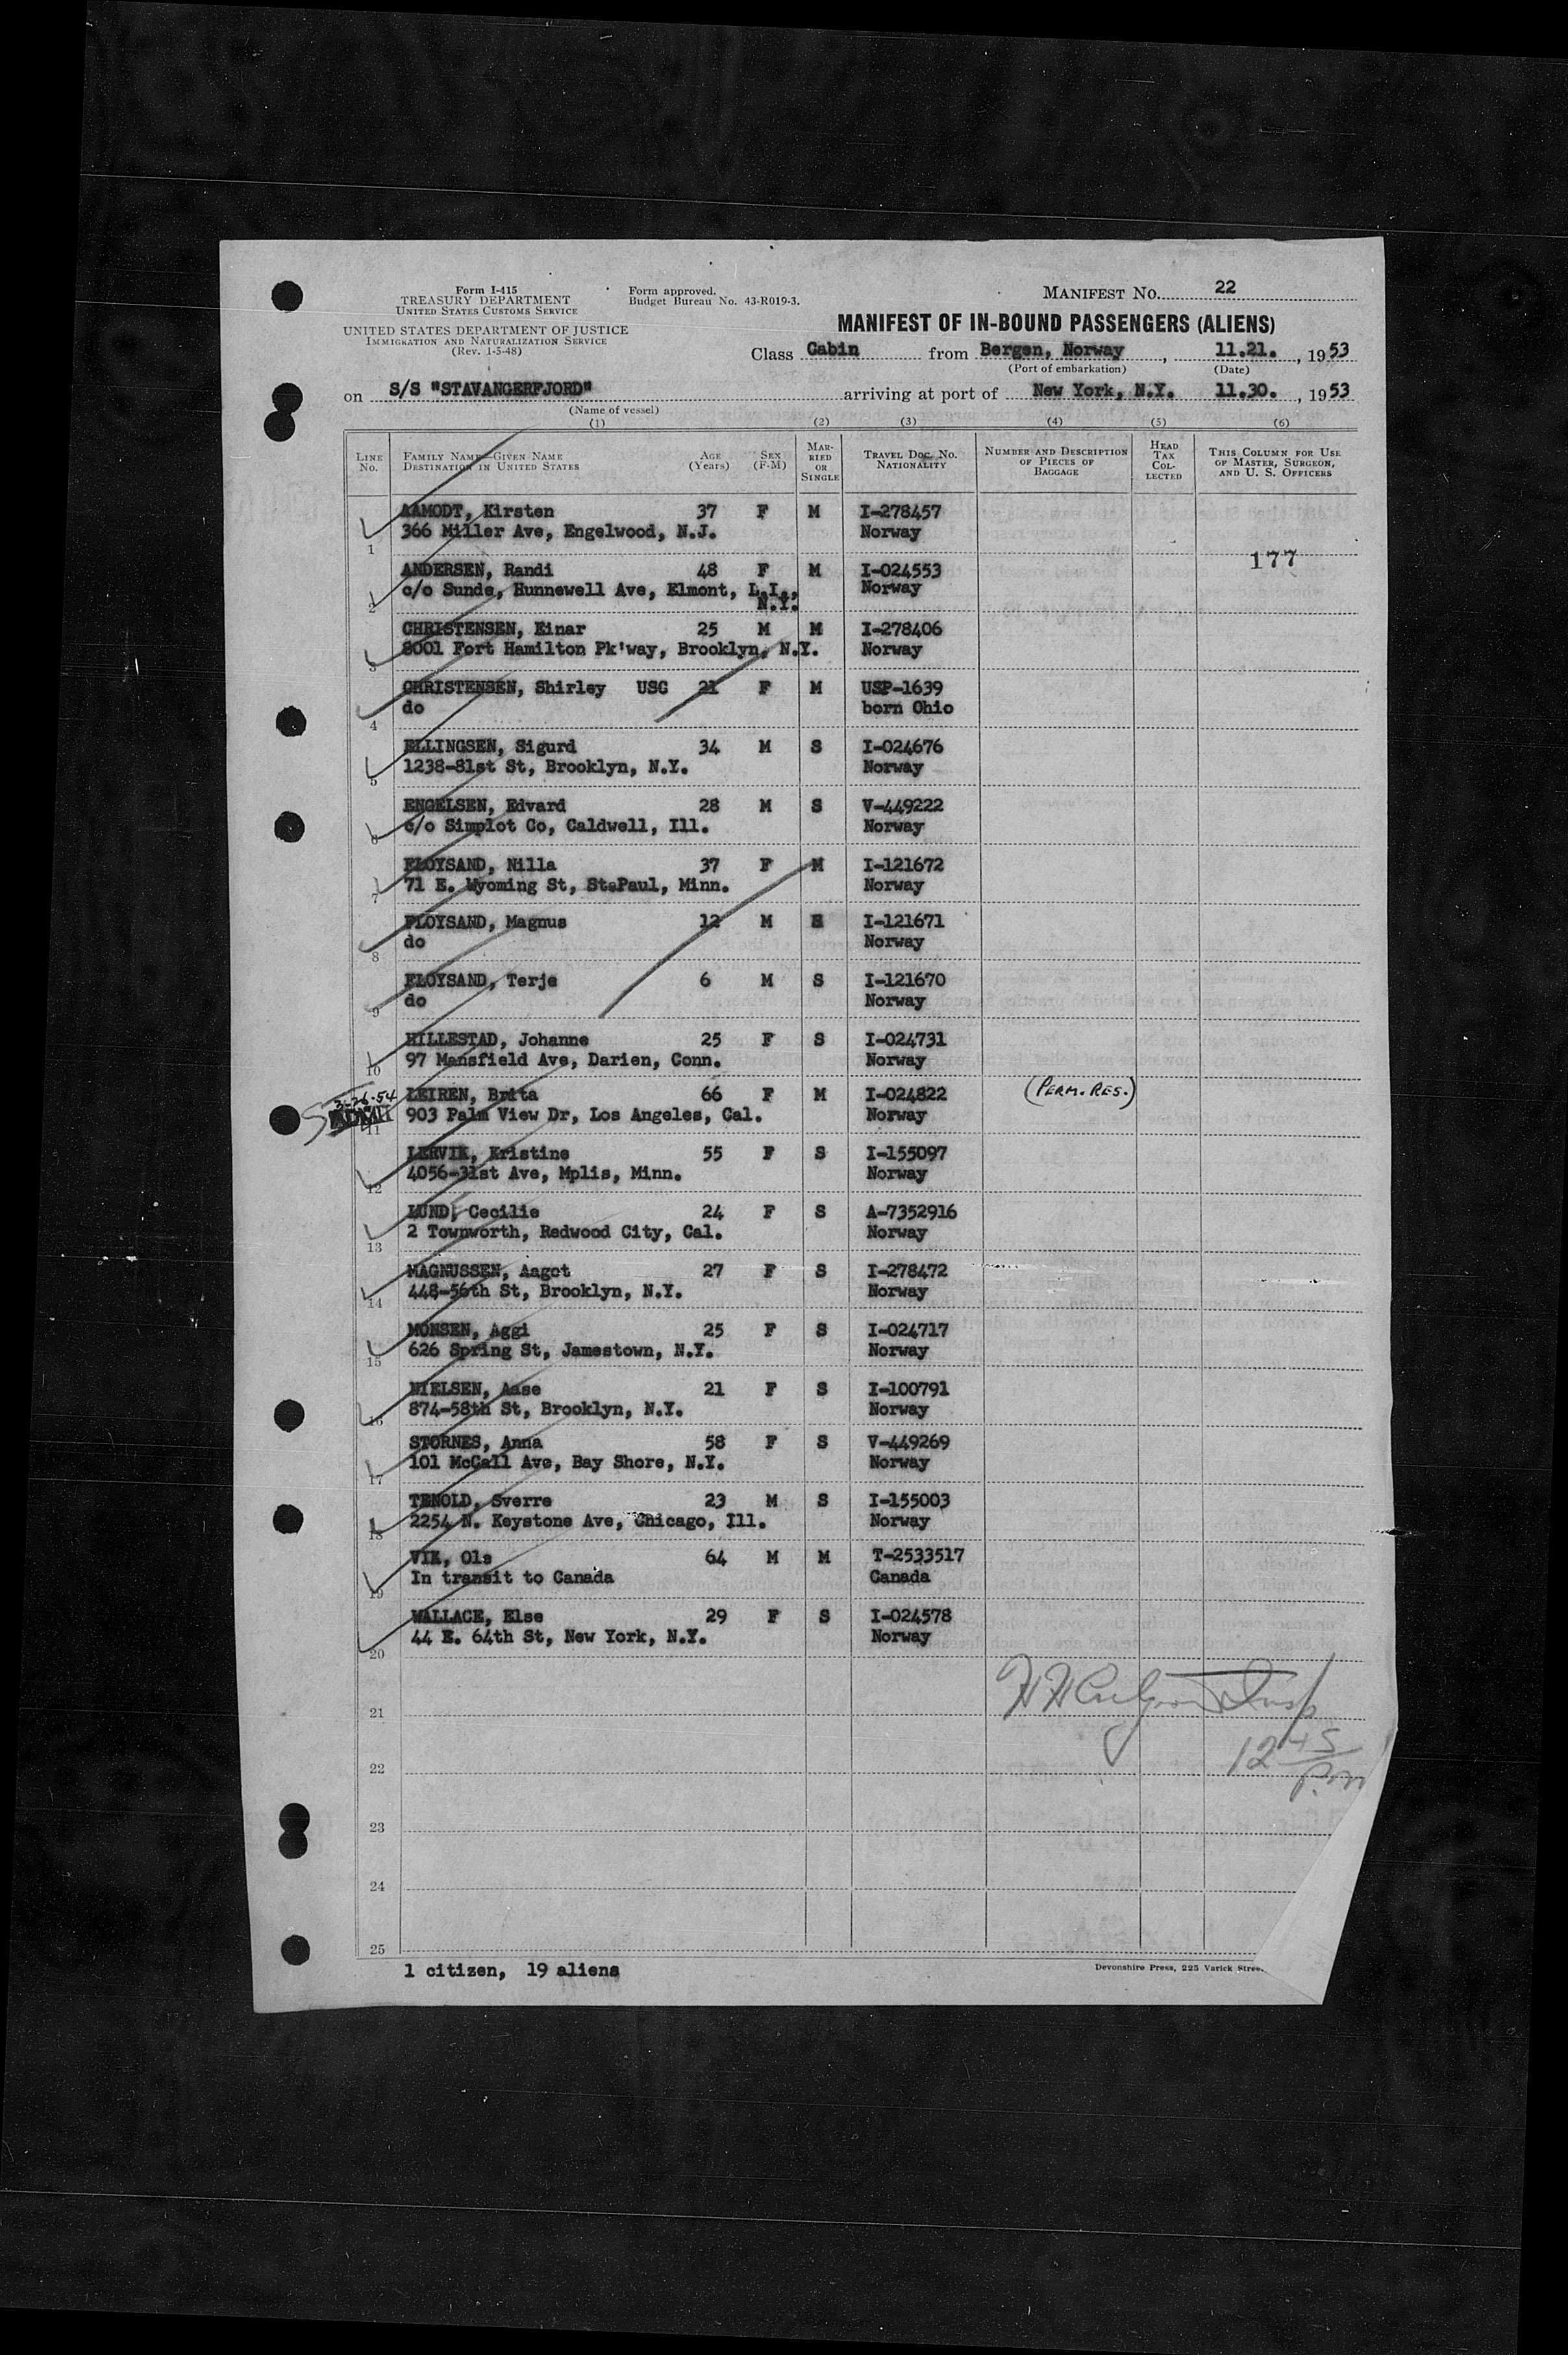 Form I-415
TREASURY DEPARTMENT
UNITED STATES CUSTOMS SERVICE
UNITED STATES DEPARTMENT OF JUSTICE
IMMIGRATION AND NATURALIZATION SERVICE
(Rev. 1-5-48)
Form approved.
Budget Bureau No. 43-R019-3.
MANIFEST No. 22
MANIFEST OF IN-BOUND PASSENGERS (ALIENS)
Class Cabin from Bergen, Norway, 11.21., 1953
(Port of embarkation) (Date)
on S/S "STAVANGERFJORD" arriving at port of New York, N.Y. 11.30., 1953
(Name of vessel)
(1) (2) (3) (4) (5) (6)
LINE No. FAMILY NAME—GIVEN NAME DESTINATION IN UNITED STATES AGE (Years) SEX (F-M) MARRIED OR SINGLE TRAVEL DOC. NO. NATIONALITY NUMBER AND DESCRIPTION OF PIECES OF BAGGAGE HEAD TAX COLLECTED THIS COLUMN FOR USE OF MASTER, SURGEON, AND U. S. OFFICERS
AAMODT, Kirsten 37 F M I-278457
1 366 Miller Ave, Engelwood, N.J. Norway
177
ANDERSEN, Randi 48 F M I-024553
2 c/o Sunde, Hunnewell Ave, Elmont, L.I., N.Y. Norway
CHRISTENSEN, Einar 25 M M I-278406
3 8001 Fort Hamilton Pk'way, Brooklyn, N.Y. Norway
CHRISTENSEN, Shirley USC 21 F M USP-1639
4 do born Ohio
ELLINGSEN, Sigurd 34 M S I-024676
5 1238-81st St, Brooklyn, N.Y. Norway
ENGELSEN, Edvard 28 M S V-449222
6 c/o Simplot Co, Caldwell, Ill. Norway
FLOYSAND, Nilla 37 F M I-121672
7 71 E. Wyoming St, St.Paul, Minn. Norway
FLOYSAND, Magnus 12 M I-121671
8 do Norway
FLOYSAND, Terje 6 M S I-121670
9 do Norway
HILLESTAD, Johanne 25 F S I-024731
10 97 Mansfield Ave, Darien, Conn. Norway
3-26-54 LEIREN, Brita 66 F M I-024822 (PERM. RES.)
11 903 Palm View Dr, Los Angeles, Cal. Norway
LERVIK, Kristine 55 F S I-155097
12 4056-31st Ave, Mplis, Minn. Norway
LUND, Cecilie 24 F S A-7352916
13 2 Townworth, Redwood City, Cal. Norway
MAGNUSSEN, Aagot 27 F S I-278472
14 448-56th St, Brooklyn, N.Y. Norway
MONSEN, Aggi 25 F S I-024717
15 626 Spring St, Jamestown, N.Y. Norway
NIELSEN, Aase 21 F S I-100791
16 874-58th St, Brooklyn, N.Y. Norway
STORNES, Anna 58 F S V-449269
17 101 McCall Ave, Bay Shore, N.Y. Norway
TENOLD, Sverre 23 M S I-155003
18 2254 N. Keystone Ave, Chicago, Ill. Norway
VIK, Ole 64 M M T-2533517
19 In transit to Canada Canada
WALLACE, Else 29 F S I-024578
20 44 E. 64th St, New York, N.Y. Norway
21
Insp
22
12 45 P.m
23
24
25
1 citizen, 19 aliens
Devonshire Press, 225 Varick